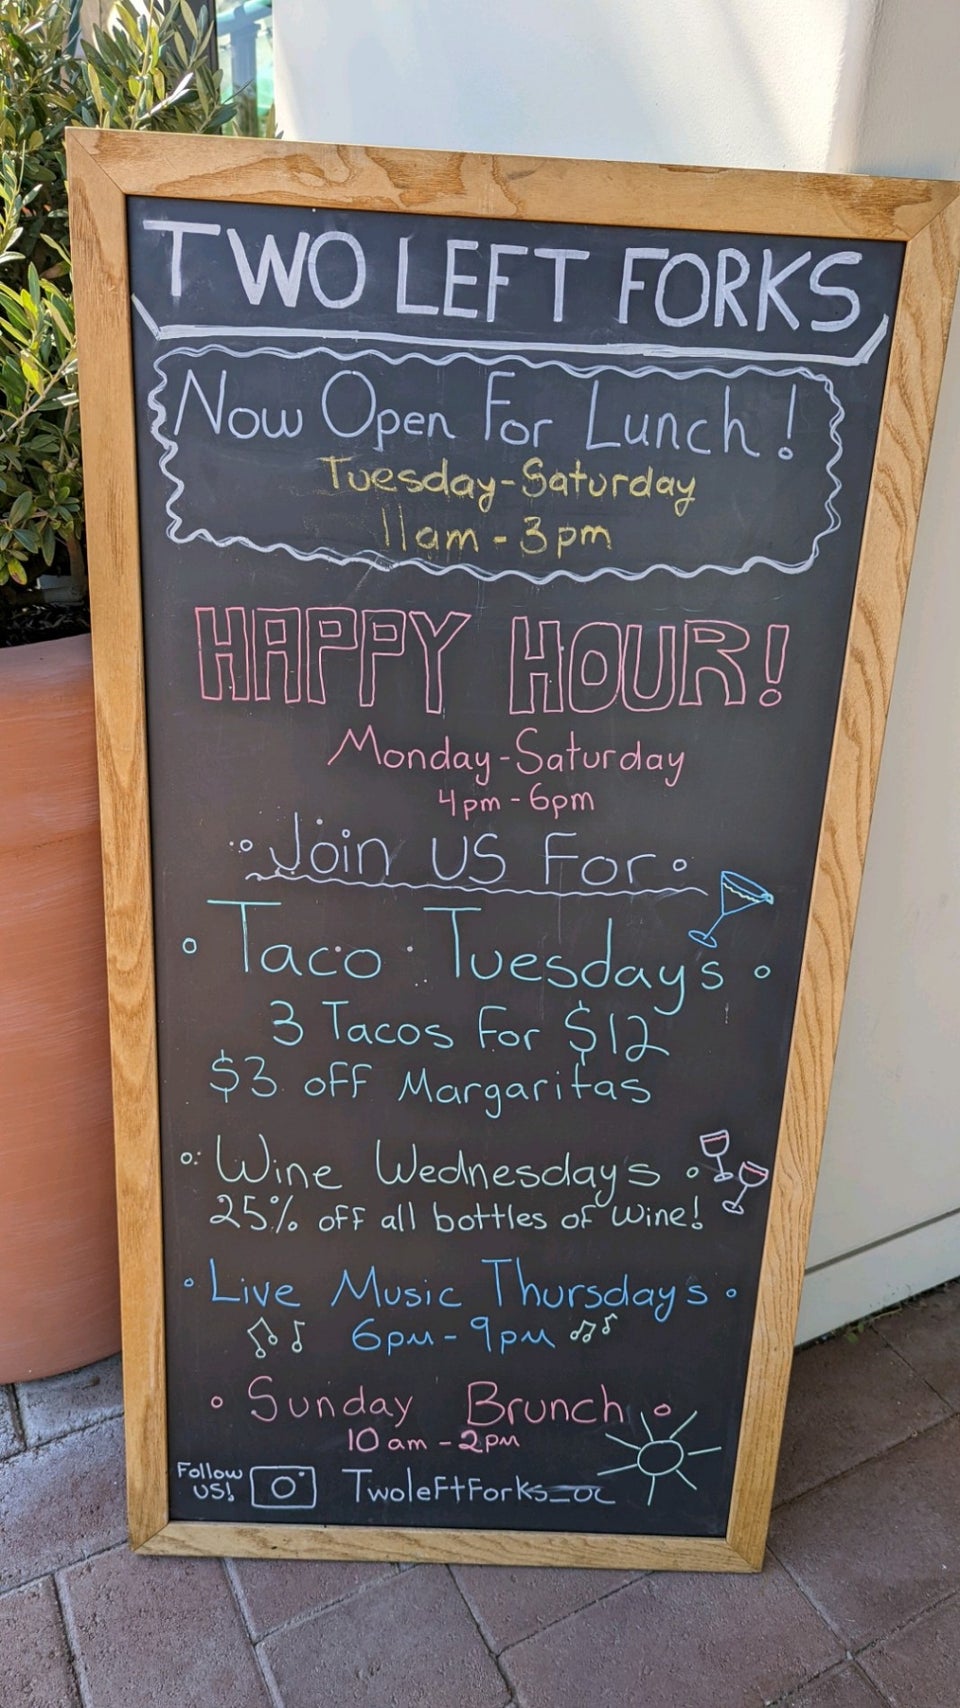 TWO LEFT FORKS
Now Open For Lunch!
Tuesday-Saturday
11am - 3pm
HAPPY HOUR!
Monday-Saturday
4pm - 6pm
Join us For
Taco Tuesdays
3 Tacos For $12
$3 off Margaritas
Wine Wednesdays
25% off all bottles of wine!
Live Music Thursdays
6pm - 9pm
Sunday Brunch
10 am - 2pm
Follow us! TwoleftForks_oc